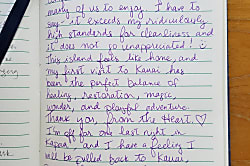 many of us to enjoy. I have to
say - it exceeds my ridiculously
high standards for cleanliness and
it does not go unappreciated! :)
This island feels like home, and
my first visit to Kauai has
been the perfect balance of
healing, restoration, magic,
wonder, and playful adventure.
Thank you, from the Heart. ♡
I'm off for one last night in
Kapaa, and I have a feeling I
will be pulled back to Kauai